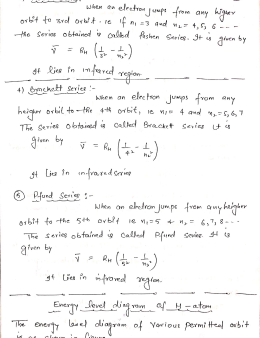 When an electron jumps from any higher
orbit to 3rd orbit. ie if n₁ = 3 and n₂ = 4, 5, 6 ----
the series obtained is called Pashen Series. It is given by
ν̅ = R_H (1/3² - 1/n₂²)
It lies in infrared region
4) Brackett Series :-
When an electron jumps from any
heigher orbit to the 4th orbit, ie n₁ = 4 and n₂ = 5,6,7
The series obtained is called Brackett series it is
given by ν̅ = R_H (1/4² - 1/n₂²)
It lies in infrared series
⑤ Pfund Series :-
When an electron jumps from any heigher
orbit to the 5th orbit ie n₁ = 5 & n₂ = 6,7,8---
The series obtained is called Pfund series. It is
given by ν̅ = R_H (1/5² - 1/n₂²)
It lies in infrared region.
Energy level diagram of H-atom
The energy level diagram of various permitted orbit
is as shown in